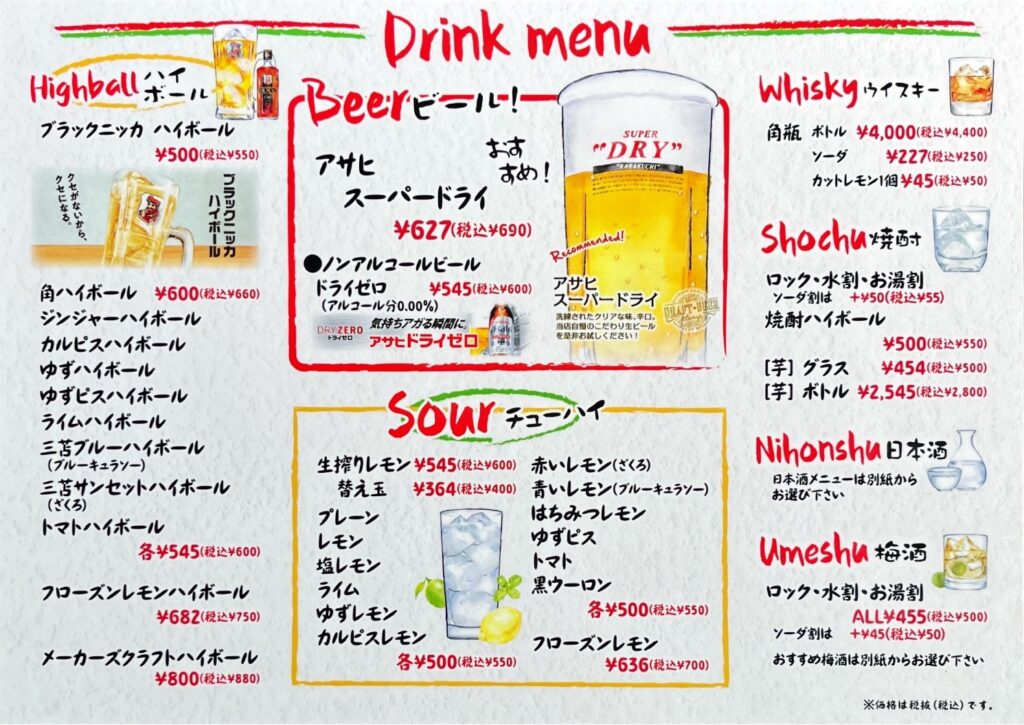 Drink menu
Highball ハイボール
ブラックニッカ ハイボール
¥500(税込¥550)
クセがないから、
クセになる。
ブラックニッカ
ハイボール
角ハイボール ¥600(税込¥660)
ジンジャーハイボール
カルピスハイボール
ゆずハイボール
ゆずピスハイボール
ライムハイボール
三苫ブルーハイボール
(ブルーキュラソー)
三苫サンセットハイボール
(ざくろ)
トマトハイボール
各¥545(税込¥600)
フローズンレモンハイボール
¥682(税込¥750)
メーカーズクラフトハイボール
¥800(税込¥880)
Beer ビール!
アサヒ
スーパードライ
おすすめ!
¥627(税込¥690)
●ノンアルコールビール
ドライゼロ ¥545(税込¥600)
(アルコール分0.00%)
DRY ZERO
ドライゼロ
気持ちアガる瞬間に。
アサヒドライゼロ
SUPER
"DRY"
"KARAKUCHI"
Recommended!
アサヒ
スーパードライ
洗練されたクリアな味、辛口。
当店自慢のこだわり生ビール
を是非お試しください!
Sour チューハイ
生搾りレモン ¥545(税込¥600)
替え玉 ¥364(税込¥400)
プレーン
レモン
塩レモン
ライム
ゆずレモン
カルピスレモン
各¥500(税込¥550)
赤いレモン(ざくろ)
青いレモン(ブルーキュラソー)
はちみつレモン
ゆずピス
トマト
黒ウーロン
各¥500(税込¥550)
フローズンレモン
¥636(税込¥700)
Whisky ウイスキー
角瓶 ボトル ¥4,000(税込¥4,400)
ソーダ ¥227(税込¥250)
カットレモン1個 ¥45(税込¥50)
Shochu 焼酎
ロック・水割・お湯割
ソーダ割は +¥50(税込¥55)
焼酎ハイボール
¥500(税込¥550)
[芋] グラス ¥454(税込¥500)
[芋] ボトル ¥2,545(税込¥2,800)
Nihonshu 日本酒
日本酒メニューは別紙から
お選び下さい
Umeshu 梅酒
ロック・水割・お湯割
ALL¥455(税込¥500)
ソーダ割は +¥45(税込¥50)
おすすめ梅酒は別紙からお選び下さい
※価格は税抜(税込)です。